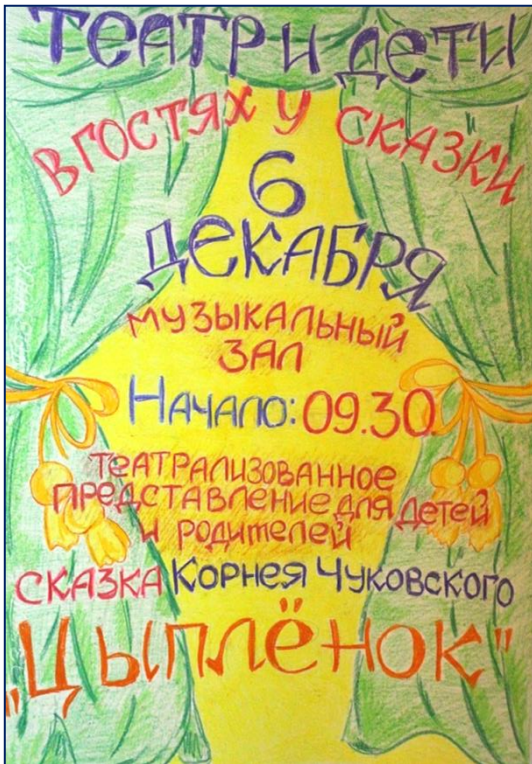 ТЕАТР И ДЕТИ
В ГОСТЯХ У СКАЗКИ
6
ДЕКАБРЯ
МУЗЫКАЛЬНЫЙ
ЗАЛ
НАЧАЛО: 09.30
ТЕАТРАЛИЗОВАННОЕ
ПРЕДСТАВЛЕНИЕ ДЛЯ ДЕТЕЙ
И РОДИТЕЛЕЙ
СКАЗКА КОРНЕЯ ЧУКОВСКОГО
„ЦЫПЛЁНОК"